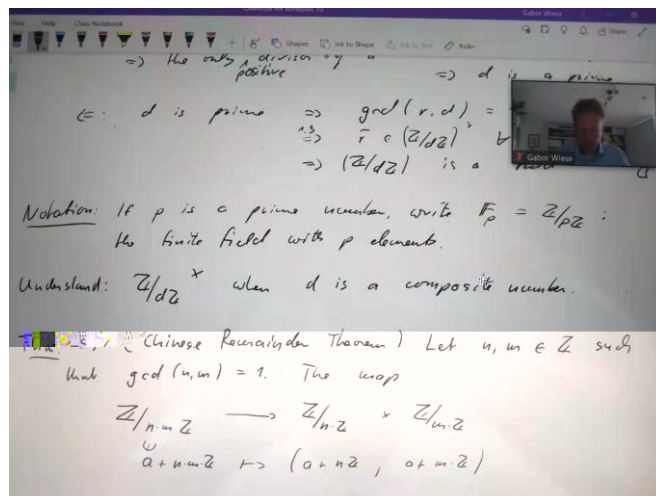 Gabor Wiese
View Help Class Notebook
Shapes Ink to Shape Ink to Text Ruler Share
=> the only positive divisor of d
=> d is a prime.
<=: d is prime => gcd(r,d) =
1.3 => r̄ ∈ (Z/dZ)^×
Gabor Wiese
=> (Z/dZ) is a
Notation: If p is a prime number, write F_p = Z/pZ :
the finite field with p elements.
Understand: Z/dZ^× when d is a composite number.
(Chinese Remainder Theorem) Let n, m ∈ Z such
that gcd(n,m) = 1. The map
Z/n·mZ → Z/n·Z × Z/m·Z
a + n·m·Z ↦ (a + nZ , a + m·Z)